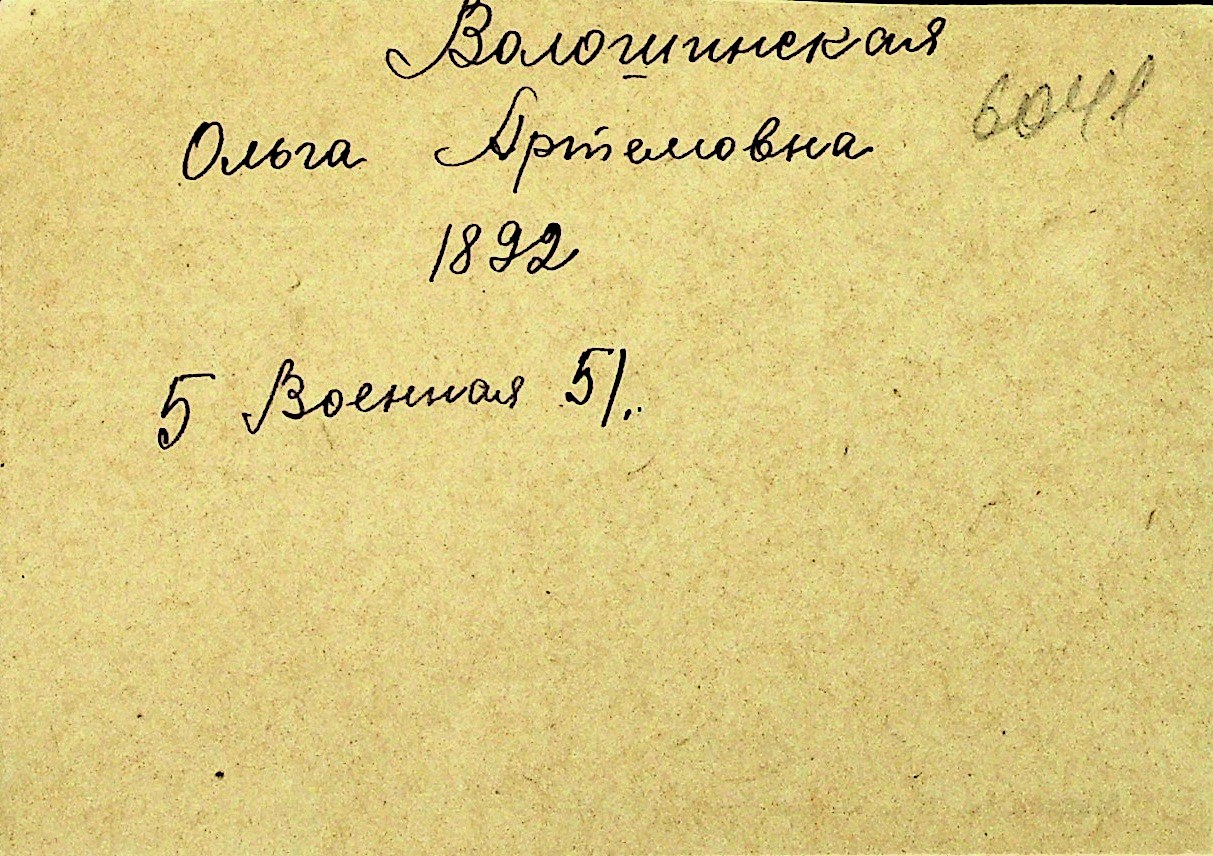 Волошинская
6041
Ольга Артемовна
1892
5 Военная 51.